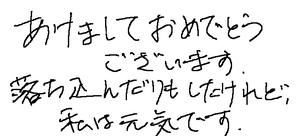 あけましておめでとう
ございます.
落ち込んだりもしたけれど、
私は元気です.